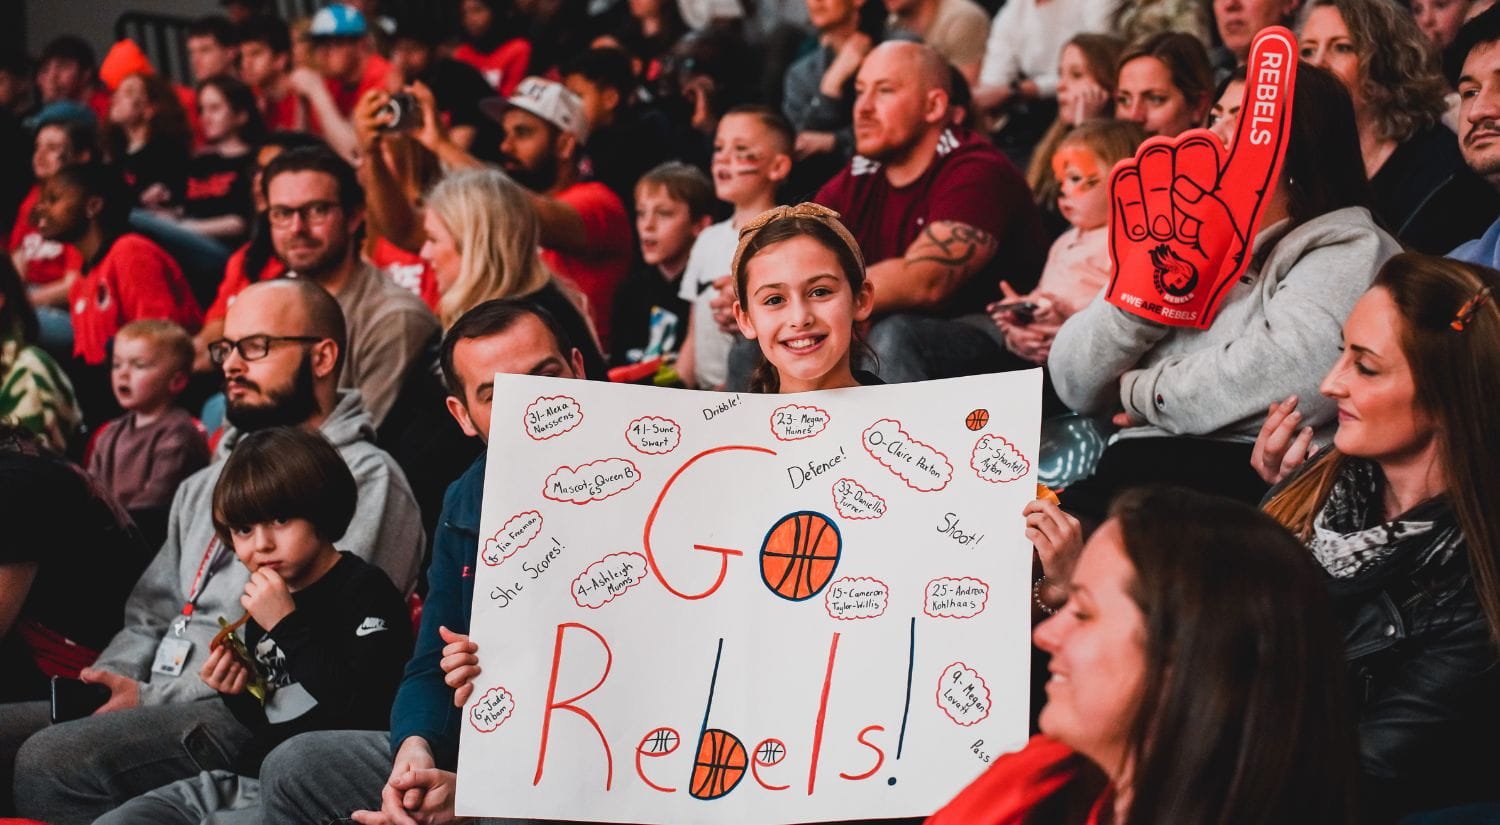 REBELS
REBELS
#WEAREREBELS
NIKE
31-Alexa
Naessens
41-Sune
Swart
Dribble!
23-Megan
Haines
0-Claire Paxton
5-Shantell
Ayton
Mascot-Queen B
65
Defence!
33-Daniella
Turner
Shoot!
Tia Freeman
She Scores!
4-Ashleigh
Munns
15-Cameron
Taylor-Willis
25-Andrea
Kohlhaas
GO
Rebels!
6-Jade
Mbam
9-Megan
Lovatt
Pass